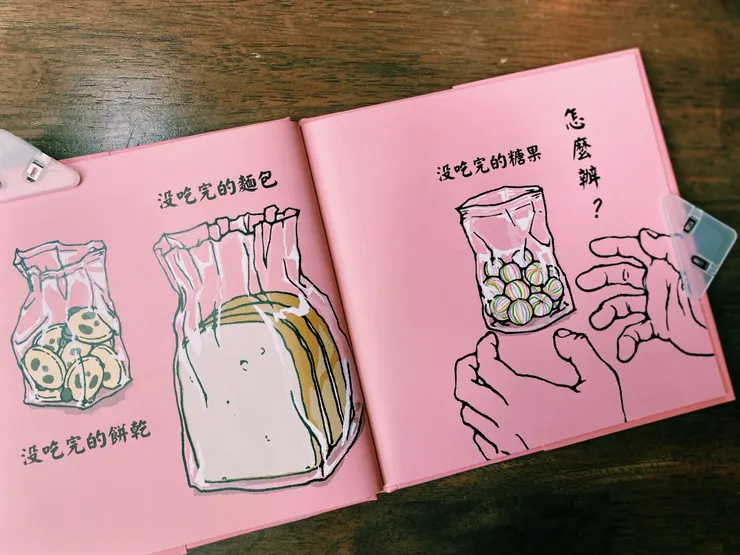 没吃完的麵包
没吃完的餅乾
没吃完的糖果
怎麼辦？